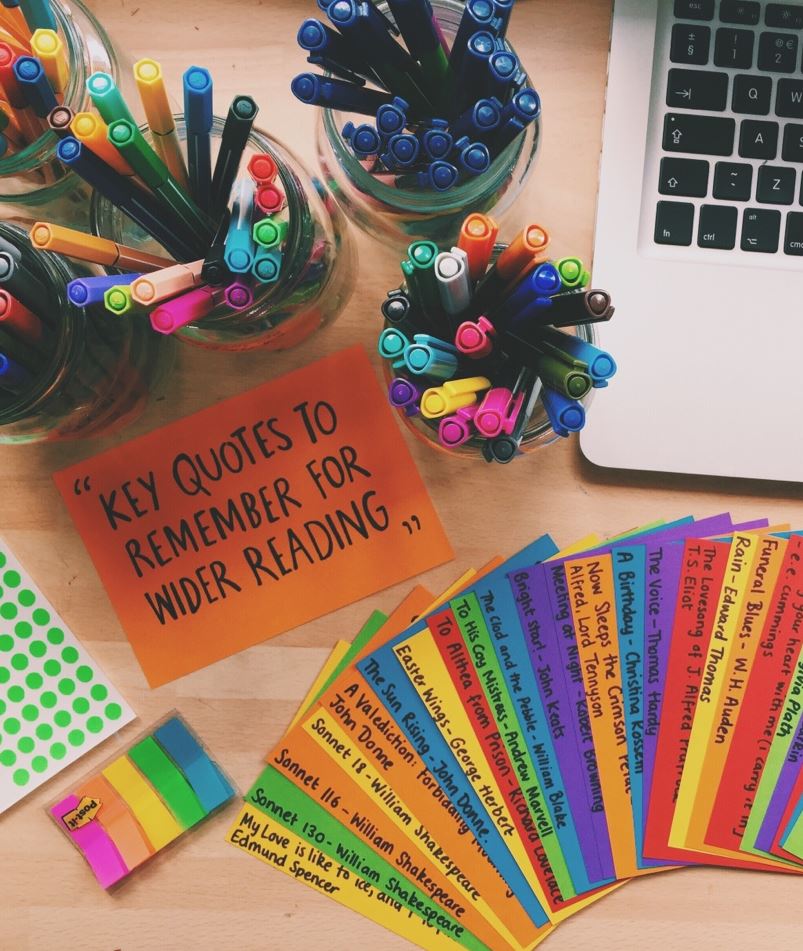 esc
± ! @ €
§ 1 2
Q W
A
~ Z
` 
fn ctrl alt
“KEY QUOTES TO
REMEMBER FOR
WIDER READING”
Post-it
My Love is like to ice, and I
Edmund Spencer
Sonnet 130 - William Shakespeare
Sonnet 116 - William Shakespeare
Sonnet 18 - William Shakespeare
A Valediction: Forbidding Mourning
John Donne
The Sun Rising - John Donne.
Easter Wings - George Herbert
To Althea from Prison - Richard Lovelace
To His Coy Mistress - Andrew Marvell
The Clod and the Pebble - William Blake
Bright Star! - John Keats
Meeting at Night - Robert Browning
Now Sleeps the Crimson Petal
Alfred, Lord Tennyson
A Birthday - Christina Rossetti
The Voice - Thomas Hardy
The Lovesong of J. Alfred
T.S. Eliot
Rain - Edward Thomas
Funeral Blues - W. H. Auden
your heart with me (i carry it in
- e.e. cummings
Plath